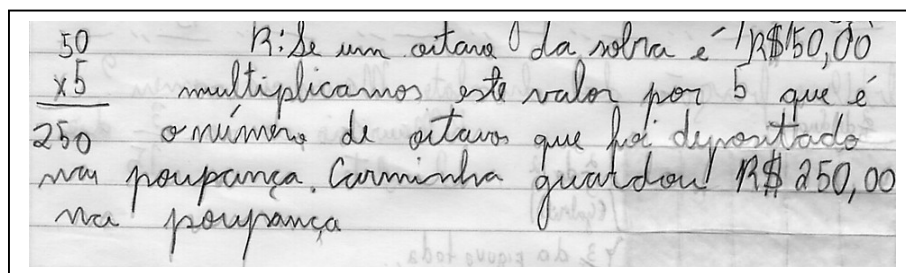 50 R: Se um oitavo da sobra é R$50,00
x5 multiplicamos este valor por 5 que é
250 o número de oitavos que foi depositado
na poupança. Carminha guardou R$ 250,00
na poupança